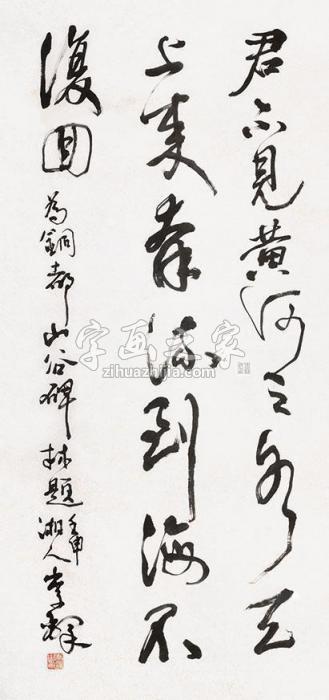 君不見黄河之水天
上来奔流到海不
復回
為銅都山谷碑林題 壬申 湘人李鐸
字画之家
zihuazhijia.com